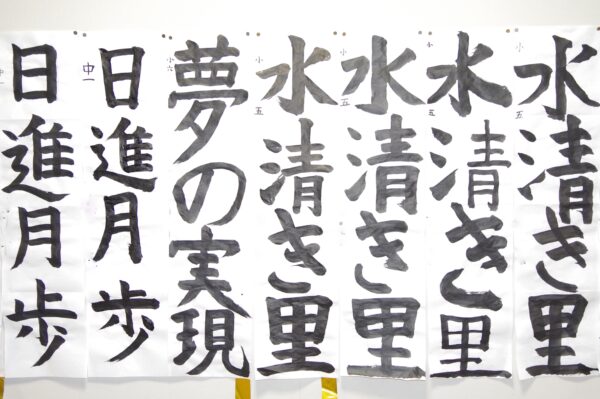 水清き里
小五
水清き里
小五
水清き里
小五
水清き里
小五
夢の実現
小六
日進月歩
中一
日進月歩
中一